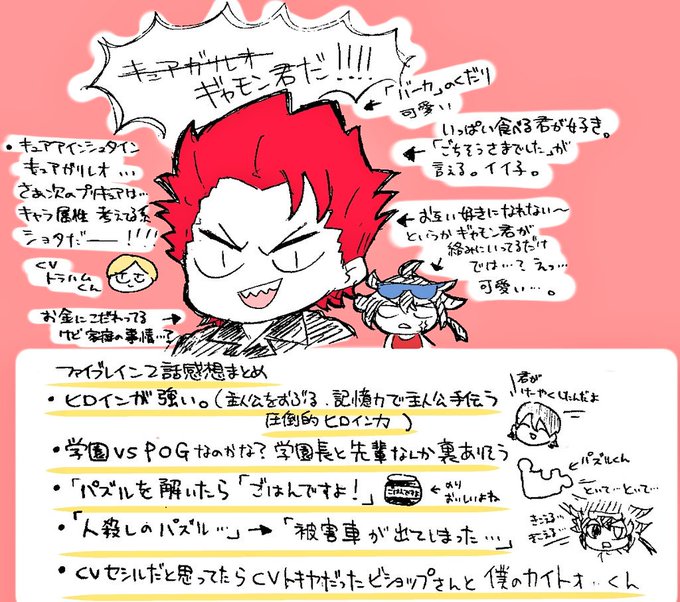 キュアガリレオ
ギャモン君だ!!!!
←「バーカ」のくだり
可愛い
いっぱい食べる君が好き。
←「ごちそうさまでした」が
言える。イイ子。
• キュアアインシュタイン
キュアガリレオ…
さあ次のプリキュアは…
キャラ属性 考える系
ショタだー!!!!
CV
トラハム
くん
←お互い好きになれない〜
というかギャモン君が
絡みにいってるだけ
では…?えっ…
可愛い…。
お金にこだわってる→
けど家庭の事情…?
ファイブレイン2話感想まとめ
・ヒロインが強い。(主人公をおぶる、記憶力で主人公手伝う
圧倒的ヒロイン力)
君が
けーやくしたんだよ
・学園VSPOGなのかな?学園長と先輩なんか裏ありそう
←パズルくん
・「パズルを解いたら「ごはんですよ!」
ごはんですよ
←のり
おいしいよね
といて…といて…
・「人殺しのパズル…」→「被害車が出てしまった…」
きこえる…
きこえる…
・CVセシルだと思ってたらCVトキヤだったビショップさんと僕のカイトォ…くん